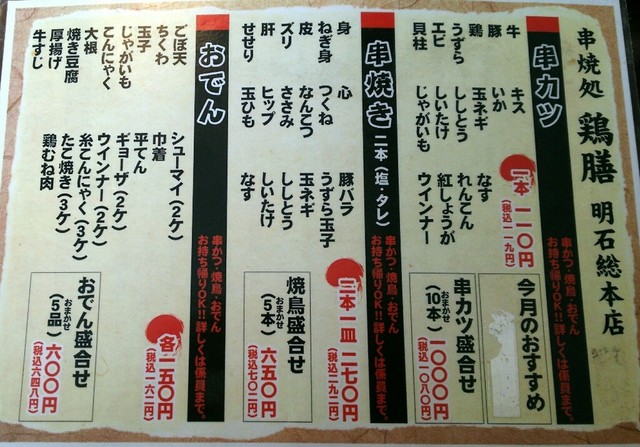 串焼処 鶏膳 明石総本店
串カツ
串かつ・焼鳥・おでん
お持ち帰りOK!!詳しくは係員まで。
牛
豚
鶏
うずら
エビ
貝柱
キス
いか
玉ネギ
ししとう
しいたけ
じゃがいも
なす
れんこん
紅しょうが
ウインナー
一本 一一〇円
(税込一一九円)
今月のおすすめ
串カツ盛合せ
おまかせ
(10本)
一〇〇〇円
(税込一〇八〇円)
串焼き 二本(塩・タレ)
串かつ・焼鳥・おでん
お持ち帰りOK!!詳しくは係員まで。
身
ねぎ身
皮
ズリ
肝
せせり
心
つくね
なんこつ
ささみ
ヒップ
玉ひも
豚バラ
うずら玉子
玉ネギ
ししとう
しいたけ
なす
二本一皿 二七〇円
(税込二九一円)
焼鳥盛合せ
おまかせ
(5本)
六五〇円
(税込七〇二円)
おでん
串かつ・焼鳥・おでん
お持ち帰りOK!!詳しくは係員まで。
ごぼ天
ちくわ
玉子
じゃがいも
こんにゃく
大根
焼き豆腐
厚揚げ
牛すじ
シューマイ(2ケ)
巾着
平てん
ギョーザ(2ケ)
ウインナー(2ケ)
糸こんにゃく(3ケ)
たこ焼き(3ケ)
鶏むね肉
各一五〇円
(税込一六二円)
おでん盛合せ
おまかせ
(5品)
六〇〇円
(税込六四八円)